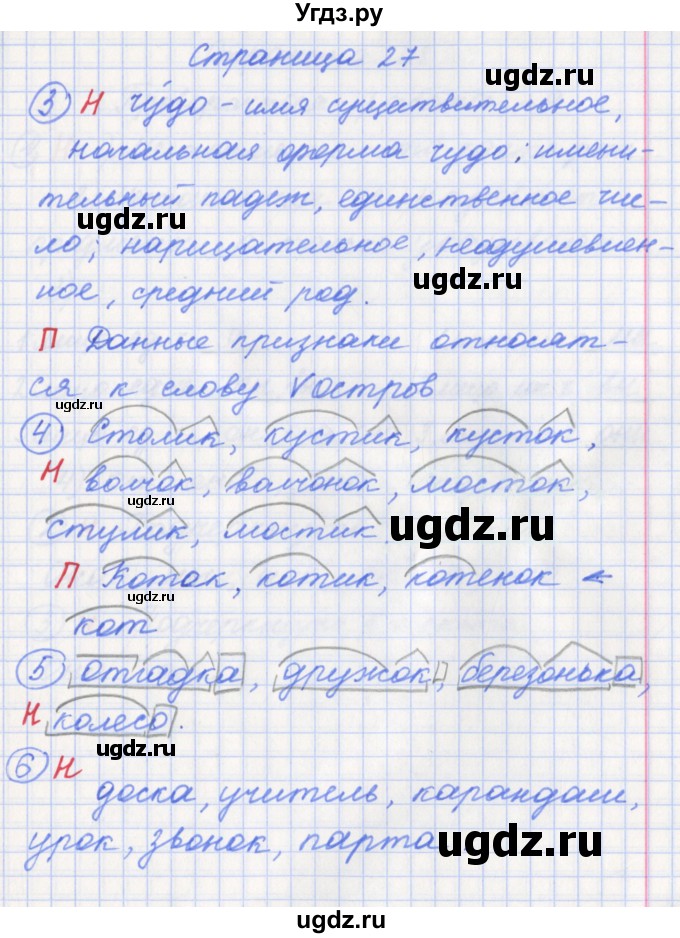 Угдз.ру
Страница 27
ugdz.ru
3 Н чу́до - имя существительное,
начальная форма чудо; имени-
тельный падеж, единственное чи-
ugdz.ru
ло; нарицательное, неодушевлен-
ugdz.ru
ное, средний род.
П Данные признаки относят-
ся к слову V остров
ugdz.ru
4 Столик, кустик, кусток,
Н волчок, волчонок, мосток,
ugdz.ru
стулик, мостик.
ugdz.ru
П Коток, котик, котенок ←
ugdz.ru
кот
5 отгадка, дружок, березонька,
Н колесо.
ugdz.ru
6 Н
доска, учитель, карандаш,
урок, звонок, парта
ugdz.ru
ugdz.ru